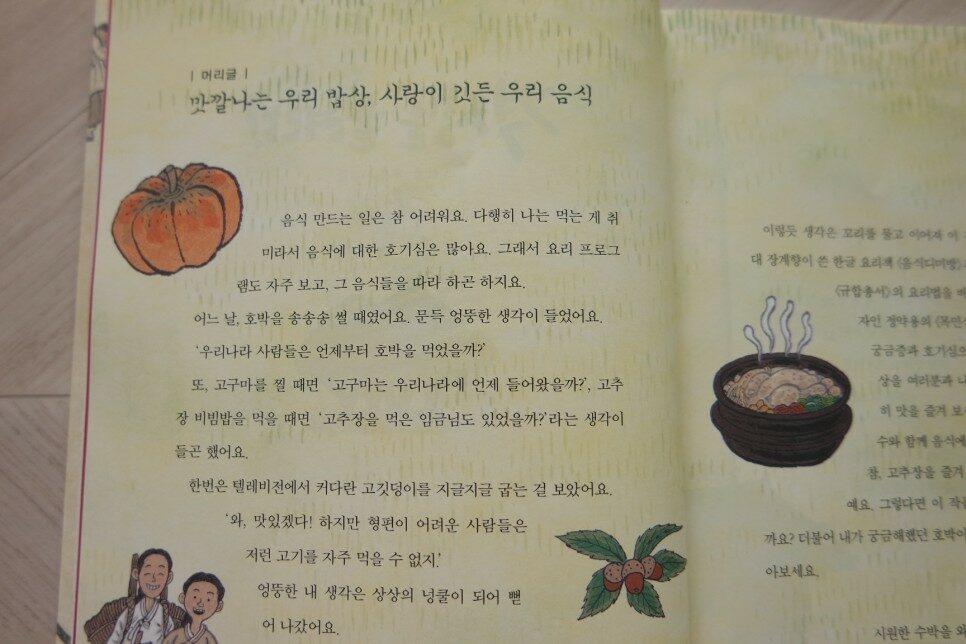 | 머리글 |
맛깔나는 우리 밥상, 사랑이 깃든 우리 음식
음식 만드는 일은 참 어려워요. 다행히 나는 먹는 게 취
미라서 음식에 대한 호기심은 많아요. 그래서 요리 프로그
램도 자주 보고, 그 음식들을 따라 하곤 하지요.
어느 날, 호박을 송송송 썰 때였어요. 문득 엉뚱한 생각이 들었어요.
‘우리나라 사람들은 언제부터 호박을 먹었을까?’
또, 고구마를 찔 때면 ‘고구마는 우리나라에 언제 들어왔을까?’, 고추
장 비빔밥을 먹을 때면 ‘고추장을 먹은 임금님도 있었을까?’라는 생각이
들곤 했어요.
한번은 텔레비전에서 커다란 고깃덩이를 지글지글 굽는 걸 보았어요.
‘와, 맛있겠다! 하지만 형편이 어려운 사람들은
저런 고기를 자주 먹을 수 없지.’
엉뚱한 내 생각은 상상의 넝쿨이 되어 뻗
어 나갔어요.
이렇듯 생각은 꼬리를 물고 이어져 이
대 장계향이 쓴 한글 요리책 《음식디미방》
《규합총서》의 요리법을
자인 정약용의
궁금증과 호기심의
상을 여러분과
히 맛을 즐겨
수와 함께 음식에
참, 고추장을 즐겨
예요. 그렇다면 이
까요? 더불어 내가 궁금해했던 호박이
아보세요.
시원한 수박을